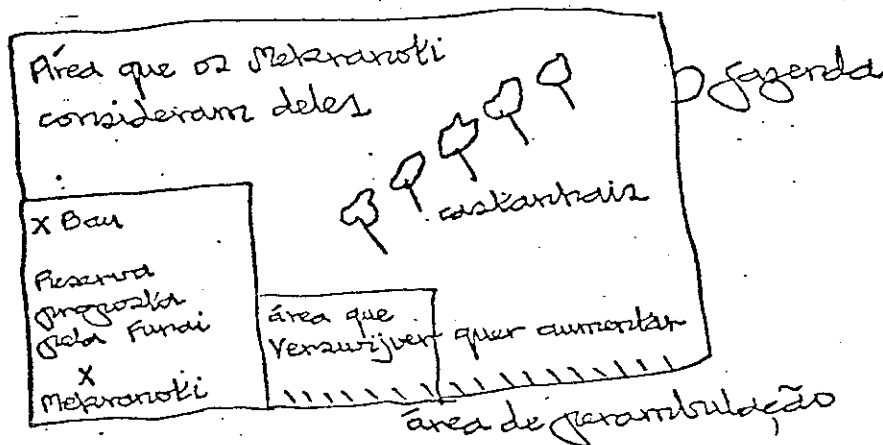 Área que os Mekranoti
consideram deles
fazenda
castanhais
X Bau
Reserva
proposta
pela Funai
X
Mekranoti
área que
Verswijver quer aumentar
área de perambulação